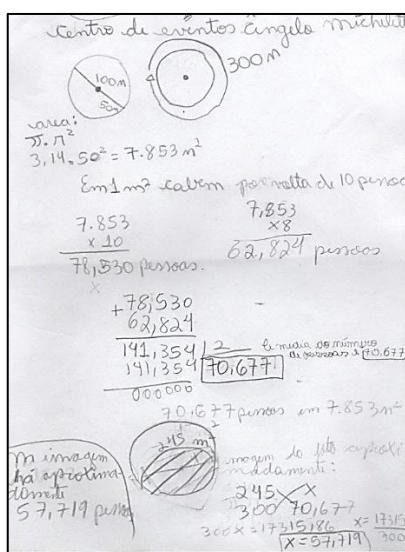 Centro de eventos Ângelo Michelet
100m
50m
300m
area:
π.r²
3,14.50² = 7.853 m²
Em 1 m² cabem por volta de 10 pesso
7.853
x 10
78,530 pessoas.
x
7,853
x8
62,824 pessoas
+78,530
62,824
141,354 | 2
141,354 70,677
000000
media do número
de pessoas é 70,677
70,677 pessoas em 7.853m²
245 m²
imagem do
aproxi
madamente:
m imagem
há aproxima-
damente
57,719 pesso
245 x
300 70,677
300x = 17315,86
x = 17315
300
x = 57,719